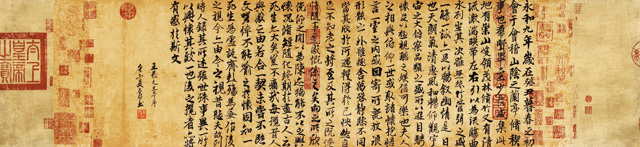 永和九年歲在癸丑暮春之初
會于會稽山陰之蘭亭脩稧
事也群賢畢至少長咸集此
地有崇山峻領茂林脩竹又有清
流激湍暎帶左右引以為流觴曲
水列坐其次雖無絲竹管弦之盛
一觴一詠亦足以暢叙幽情是日
也天朗氣清惠風和暢仰觀宇
宙之大俯察品類之盛所以遊目騁
懷足以極視聽之娛信可樂也夫人
之相與俯仰一世或取諸懷抱悟
言一室之內或因寄所託放浪
形骸之外雖趣舍萬殊靜躁不同
當其欣於所遇暫得於己快然自
足不知老之將至及其所之既惓
情隨事遷感慨係之矣向之所欣
俛仰之間以為陳迹猶不能不以之興
懷況脩短隨化終期於盡古人云
死生亦大矣豈不痛哉每攬昔人
興感之由若合一契未嘗不臨
文嗟悼不能喻之於懷固知一
死生為虛誕齊彭殤為妄作後
之視今亦由今之視昔悲夫故列叙
時人錄其所述雖世殊事異所
以興懷其致一也後之攬者亦將
有感於斯文